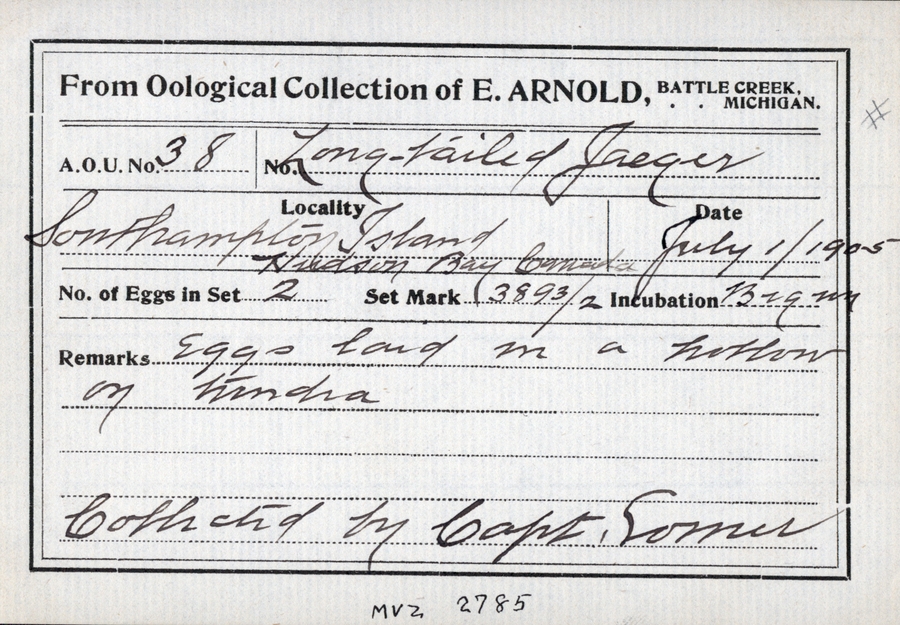 From Oological Collection of E. ARNOLD, BATTLE CREEK, . . MICHIGAN.
#
A.O.U. No. 38 No. Long-tailed Jaeger
Locality Date
Southampton Island July 1/1905
Hudson Bay Canada
No. of Eggs in Set 2 Set Mark (3893/2 Incubation Begun
Remarks Eggs laid in a hollow
on tundra
Collected by Capt.
MVZ 2785